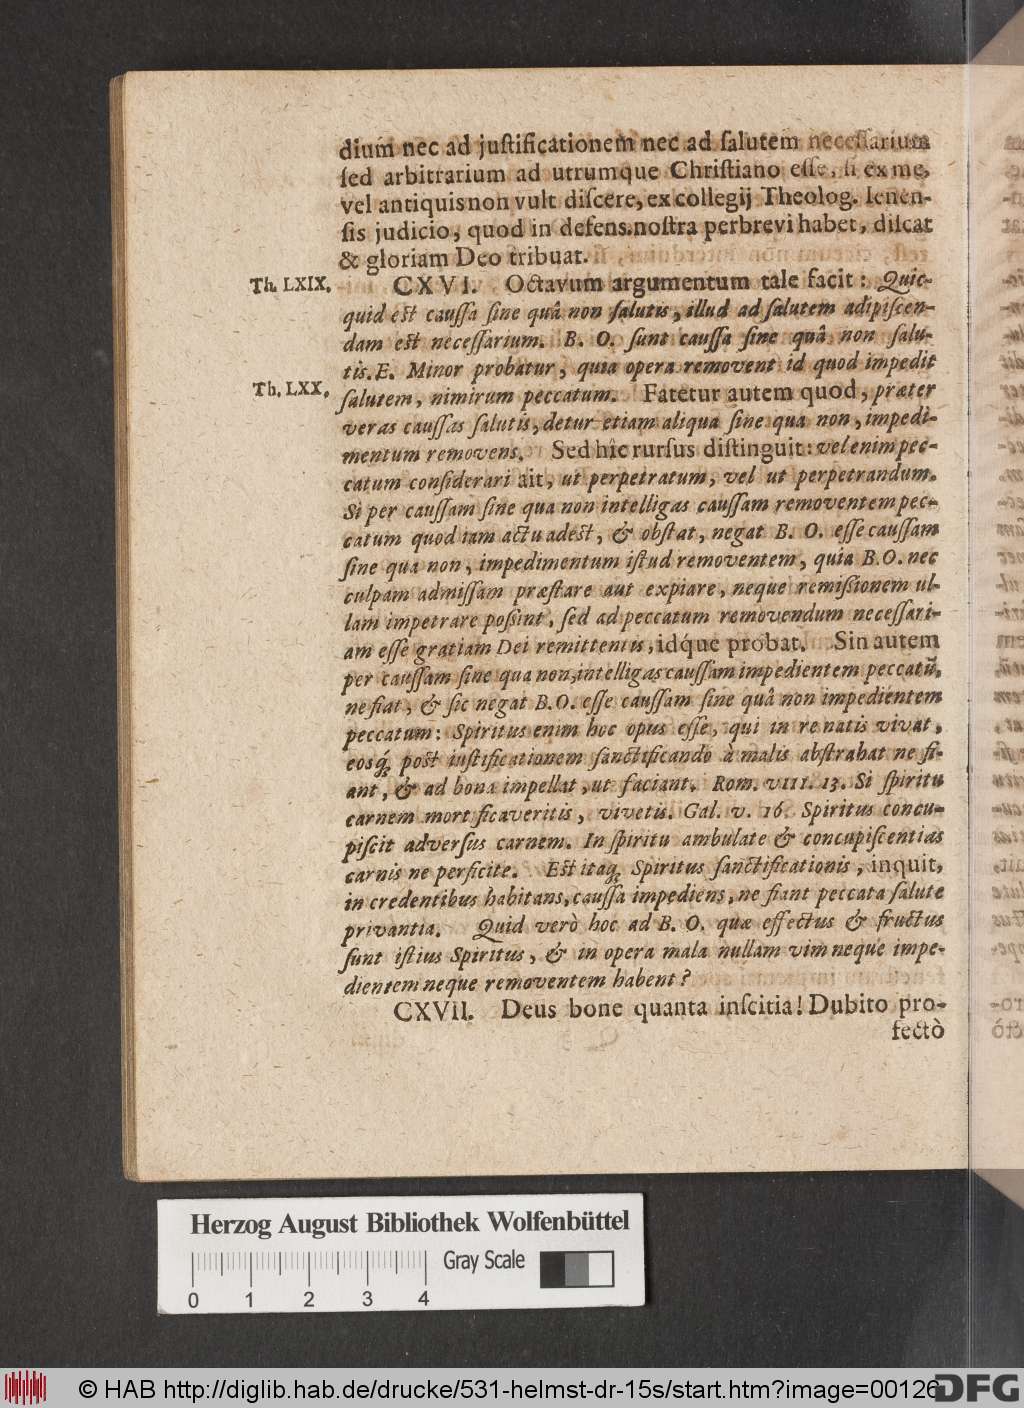 dium nec ad juſtificationem nec ad ſalutem neceſſarium
ſed arbitrarium ad utrumque Chriſtiano eſſe, ſi ex me,
vel antiquis non vult diſcere, ex collegij Theolog. Ienen-
ſis judicio, quod in defens. noſtra perbrevi habet, diſcat
& gloriam Deo tribuat.
Th. LXIX.
CXVI. Octavum argumentum tale facit: Quic-
quid eſt cauſſa ſine quâ non ſalutis, illud ad ſalutem adipiſcen-
dam eſt neceſſarium. B. O. ſunt cauſſa ſine quâ non ſalu-
tis. E. Minor probatur, quia opera removent id quod impedit
Th. LXX.
ſalutem, nimirum peccatum. Fatetur autem quod, præter
veras cauſſas ſalutis, detur etiam aliqua ſine qua non, impedi-
mentum removens. Sed hîc rurſus diſtinguit: vel enim pec-
catum conſiderari ait, ut perpetratum, vel ut perpetrandum.
Si per cauſſam ſine qua non intelligas cauſſam removentem pec-
catum quod iam actu adeſt, & obſtat, negat B. O. eſſe cauſſam
ſine qua non, impedimentum iſtud removentem, quia B. O. nec
culpam admiſſam præſtare aut expiare, neque remißionem ul-
lam impetrare poßint, ſed ad peccatum removendum neceſſari-
am eſſe gratiam Dei remittentis, idq́ue probat. Sin autem
per cauſſam ſine qua non, intelligas cauſſam impedientem peccatũ,
ne fiat, & ſic negat B. O. eſſe cauſſam ſine quâ non impedientem
peccatum: Spiritus enim hoc opus eſſe, qui in renatis vivat,
eosq́; poſt iuſtificationem ſanctificando à malis abſtrahat ne fi-
ant, & ad bona impellat, ut faciant. Rom. VIII. 13. Si ſpiritu
carnem mortificaveritis, vivetis. Gal. v. 16. Spiritus concu-
piſcit adverſus carnem. In ſpiritu ambulate & concupiſcentias
carnis ne perficite. Eſt itaq; Spiritus ſanctificationis, inquit,
in credentibus habitans, cauſſa impediens, ne fiant peccata ſalute
privantia. Quid verò hoc ad B. O. quæ effectus & fructus
ſunt iſtius Spiritus, & in opera mala nullam vim neque impe-
dientem neque removentem habent?
CXVII. Deus bone quanta inſcitia! Dubito pro-
fectò
Herzog August Bibliothek Wolfenbüttel
Gray Scale
0 1 2 3 4
© HAB http://diglib.hab.de/drucke/531-helmst-dr-15s/start.htm?image=00126
DFG